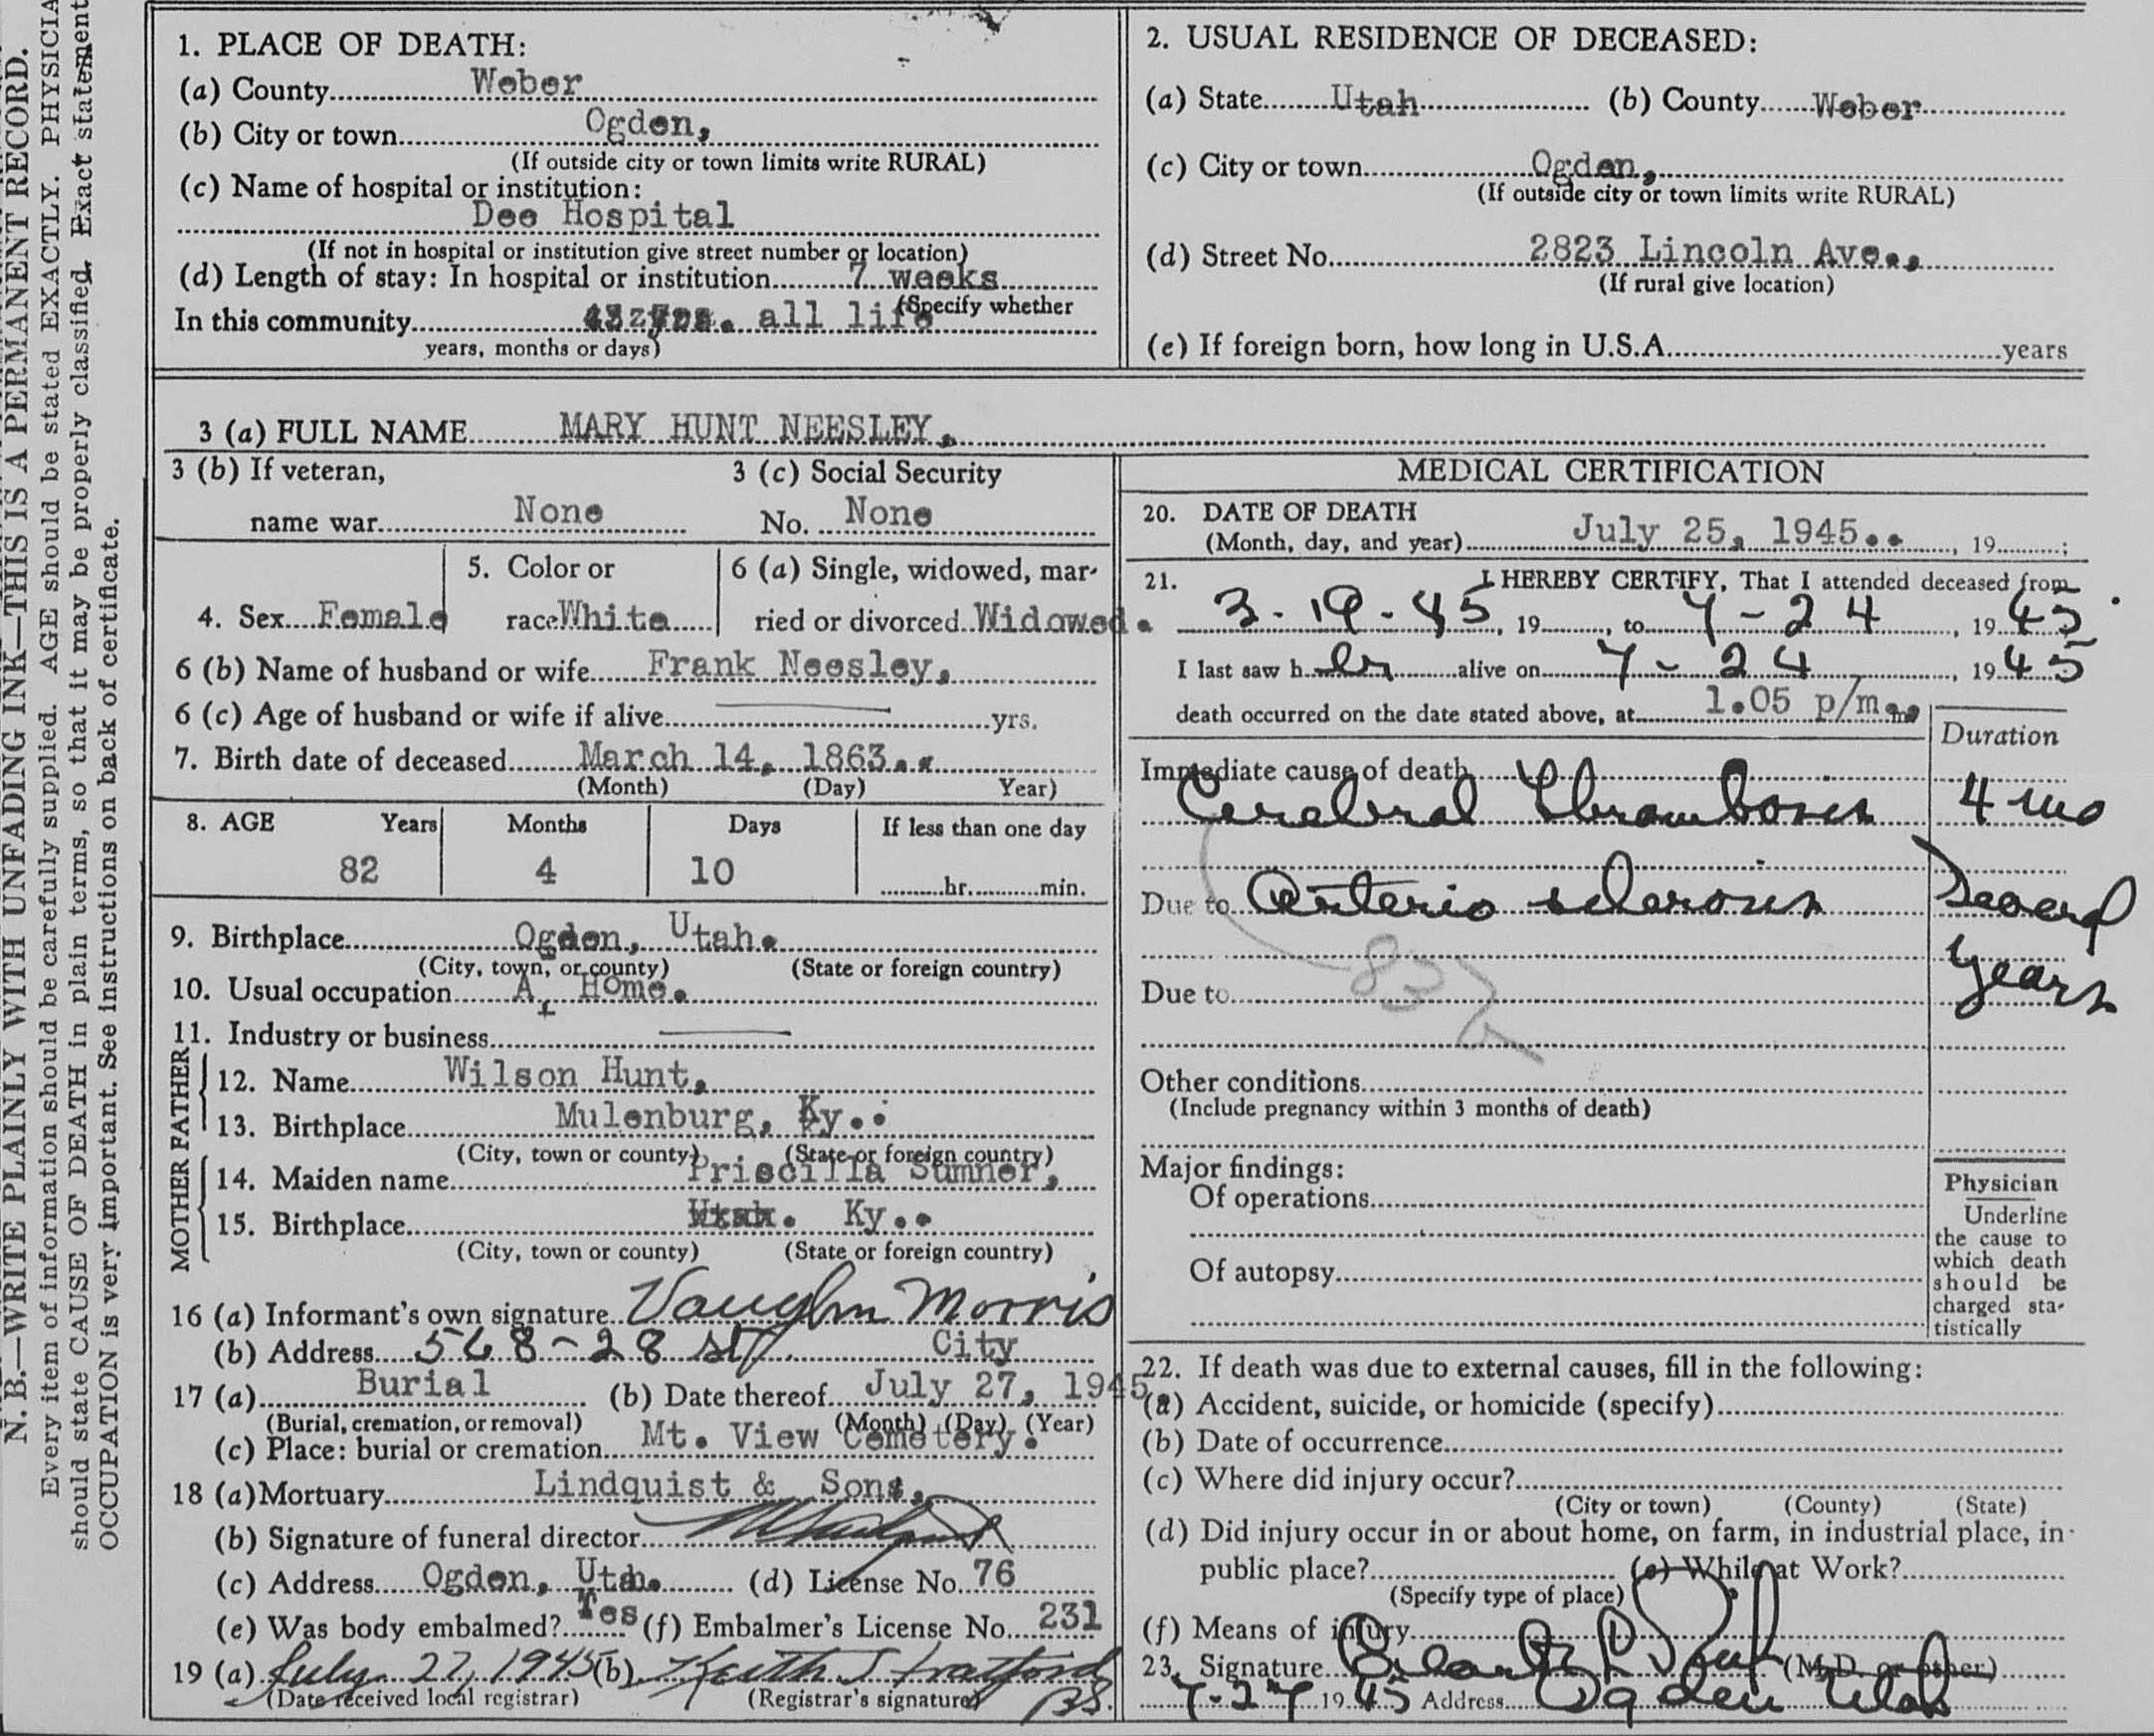 N. B.—WRITE PLAINLY WITH UNFADING INK—THIS IS A PERMANENT RECORD.
Every item of information should be carefully supplied. AGE should be stated EXACTLY. PHYSICIA
should state CAUSE OF DEATH in plain terms, so that it may be properly classified. Exact statement
OCCUPATION is very important. See instructions on back of certificate.
1. PLACE OF DEATH:
(a) County Weber
(b) City or town Ogden,
(If outside city or town limits write RURAL)
(c) Name of hospital or institution:
Dee Hospital
(If not in hospital or institution give street number or location)
(d) Length of stay: In hospital or institution 7 weeks
(Specify whether
In this community all life
years, months or days)
2. USUAL RESIDENCE OF DECEASED:
(a) State Utah (b) County Weber
(c) City or town Ogden,
(If outside city or town limits write RURAL)
(d) Street No. 2823 Lincoln Ave.,
(If rural give location)
(e) If foreign born, how long in U.S.A. years
3 (a) FULL NAME MARY HUNT NEESLEY,
3 (b) If veteran,
name war None
3 (c) Social Security
No. None
4. Sex Female
5. Color or
race White
6 (a) Single, widowed, mar-
ried or divorced Widowed.
6 (b) Name of husband or wife Frank Neesley,
6 (c) Age of husband or wife if alive — yrs.
7. Birth date of deceased March 14, 1863..
(Month) (Day) Year)
8. AGE Years Months Days If less than one day
82 4 10 hr. min.
9. Birthplace Ogden, Utah.
(City, town, or county) (State or foreign country)
10. Usual occupation At Home.
11. Industry or business —
FATHER
12. Name Wilson Hunt,
13. Birthplace Mulenburg, Ky..
(City, town or county) (State or foreign country)
MOTHER
14. Maiden name Priscilla Sumner,
15. Birthplace Utah. Ky..
(City, town or county) (State or foreign country)
16 (a) Informant's own signature Vaughn Morris
(b) Address 568-28 St City
17 (a) Burial (b) Date thereof July 27, 1945
(Burial, cremation, or removal) (Month) (Day) (Year)
(c) Place: burial or cremation Mt. View Cemetery.
18 (a) Mortuary Lindquist & Sons,
(b) Signature of funeral director
(c) Address Ogden, Utah. (d) License No. 76
(e) Was body embalmed? Yes (f) Embalmer's License No. 231
19 (a) July 27, 1945 (b) Keith Stratford
(Date received local registrar) (Registrar's signature) BS.
MEDICAL CERTIFICATION
20. DATE OF DEATH
(Month, day, and year) July 25, 1945.. , 19 ;
21. I HEREBY CERTIFY, That I attended deceased from
3-19-45, 19 , to 7-24, 1945
I last saw her alive on 7-24, 1945
death occurred on the date stated above, at 1.05 p/m. m.
Duration
Immediate cause of death
Cerebral Thrombosis 4 mo
Due to Arterio sclerosis Several
years
83b
Due to
Other conditions
(Include pregnancy within 3 months of death)
Major findings:
Of operations
Of autopsy
Physician
Underline
the cause to
which death
should be
charged sta-
tistically
22. If death was due to external causes, fill in the following:
(a) Accident, suicide, or homicide (specify)
(b) Date of occurrence
(c) Where did injury occur?
(City or town) (County) (State)
(d) Did injury occur in or about home, on farm, in industrial place, in
public place? (e) While at Work?
(Specify type of place)
(f) Means of injury
23. Signature (M.D. or other)
7-27 1945 Address Ogden Utah